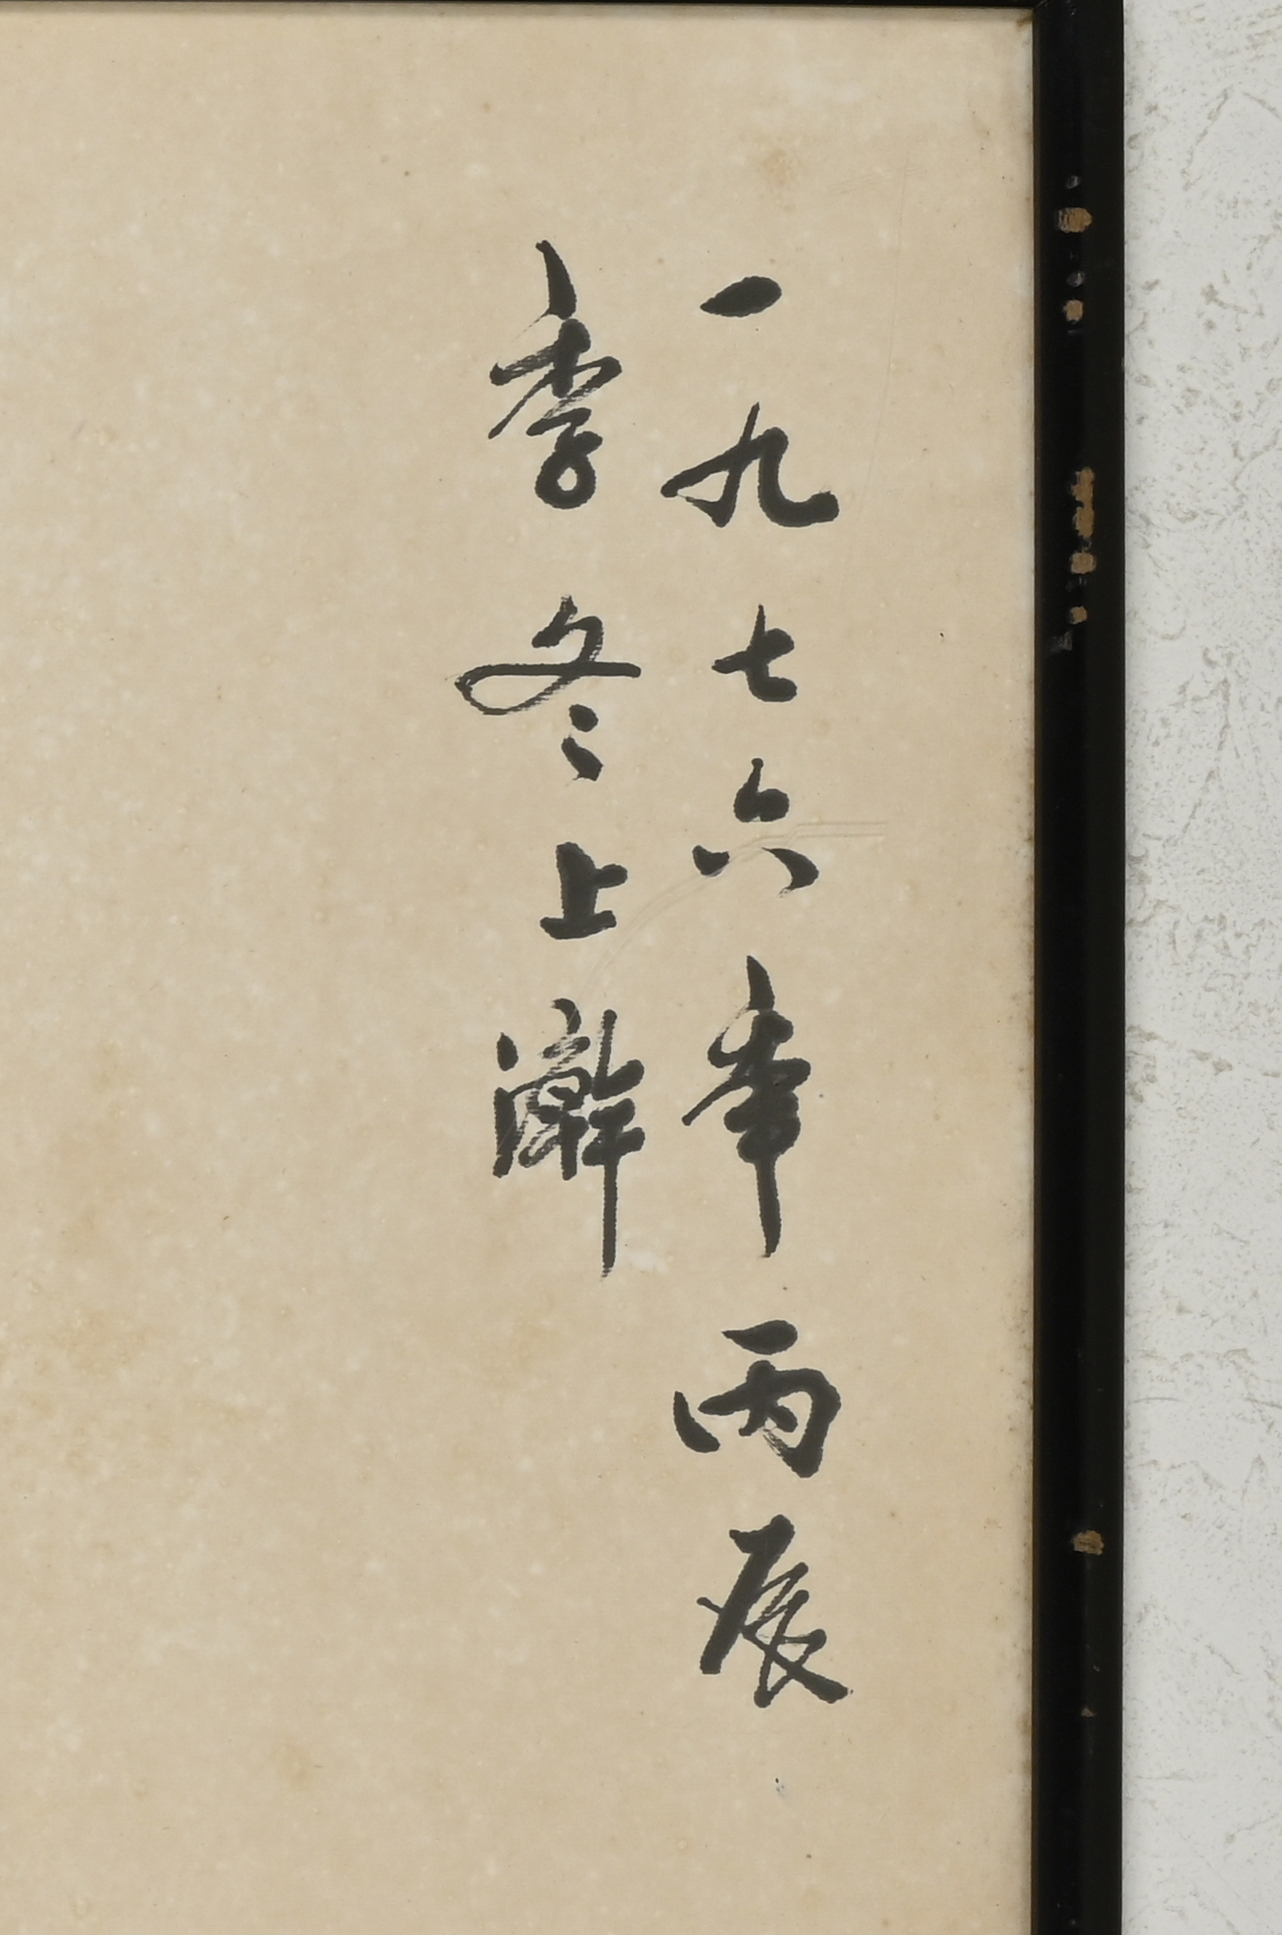 一九七六年丙辰
季冬上澣